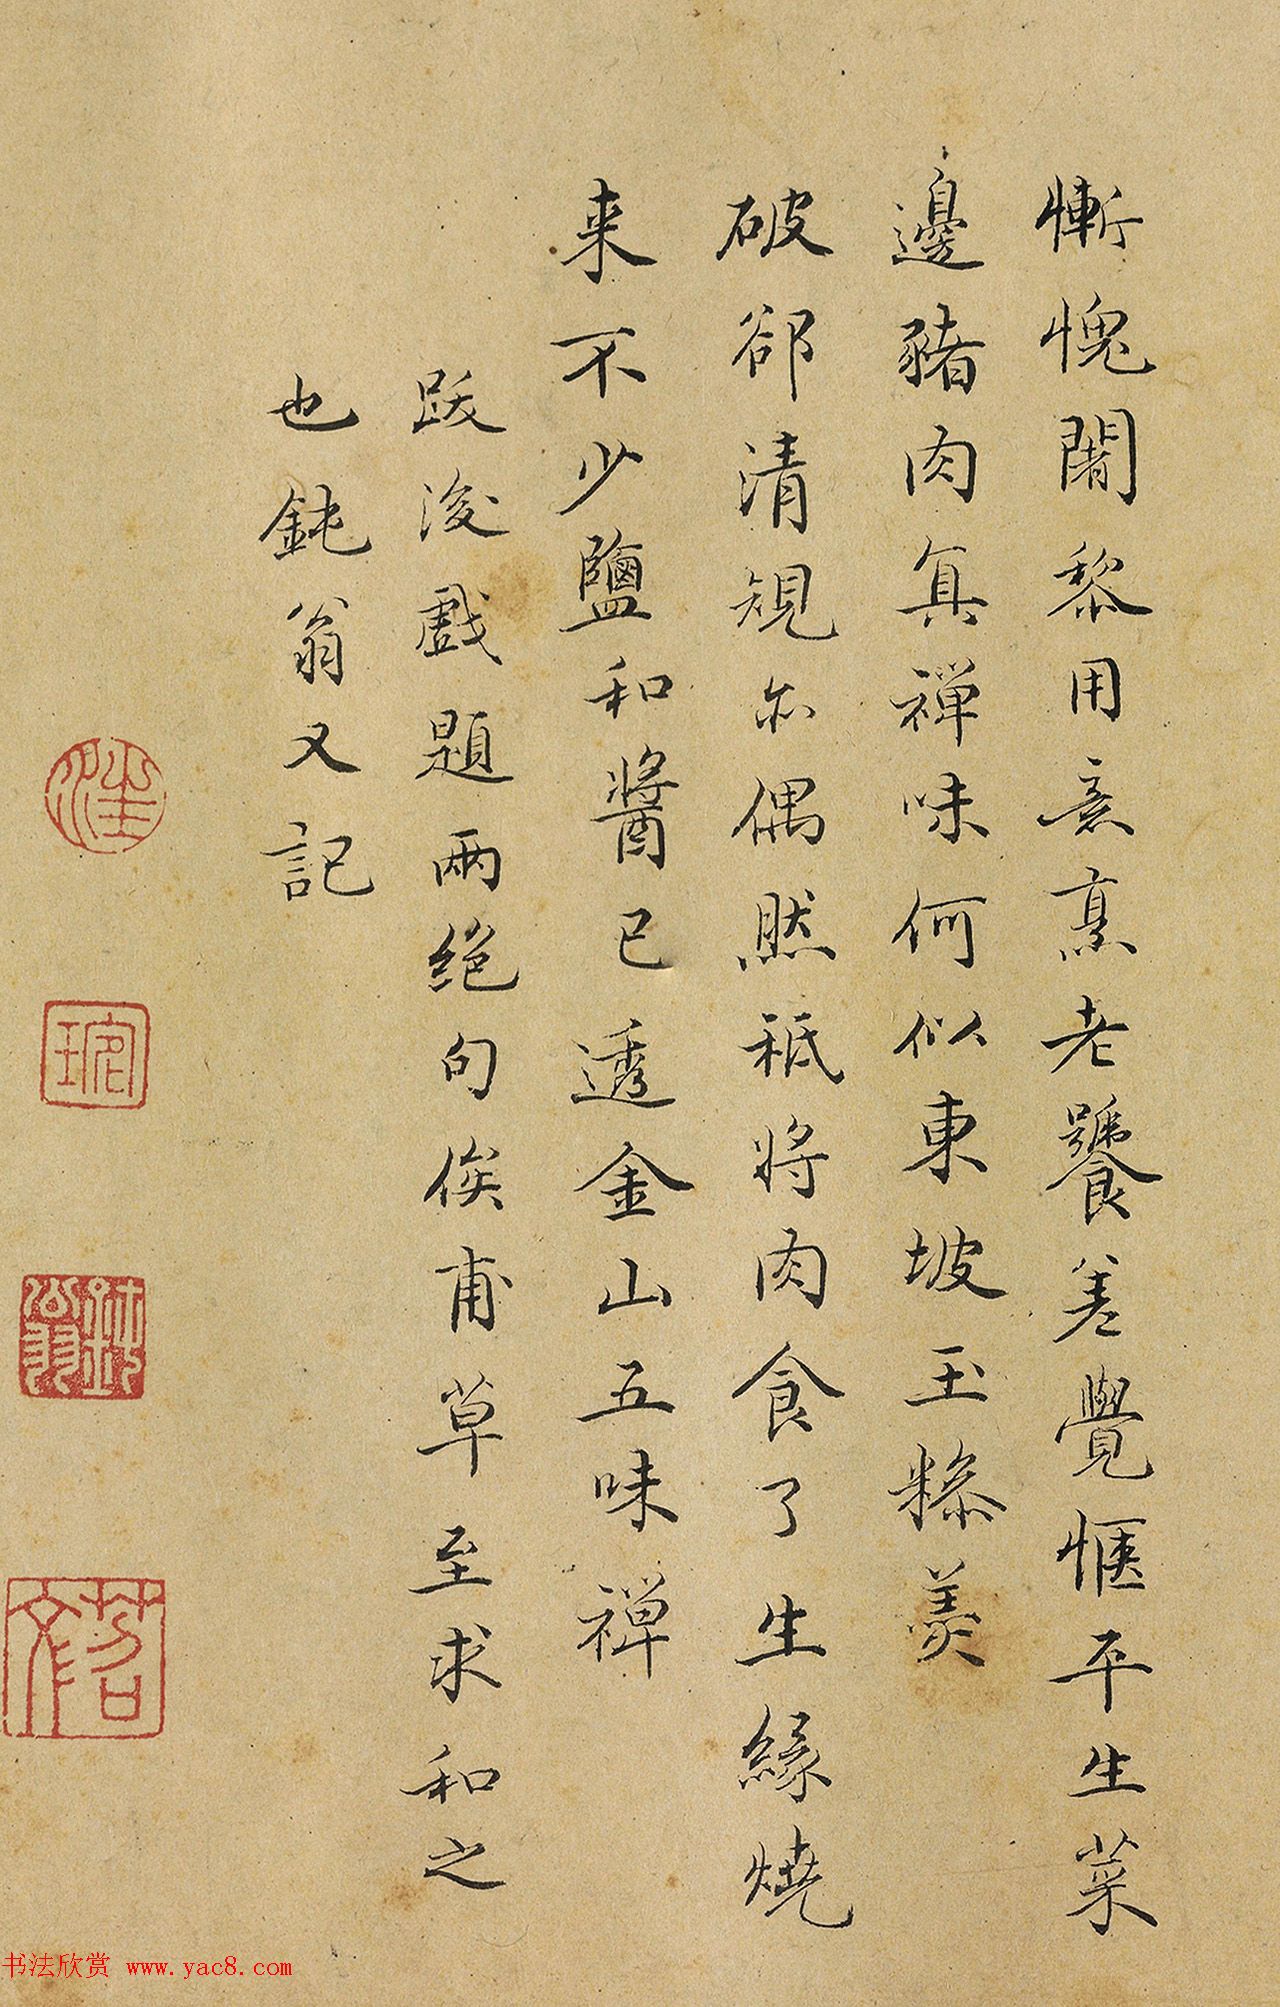 慚愧闍黎用意烹老饕差覺愜平生菜
邊豬肉真禪味何似東坡玉糝羹
破卻清規亦偶然秖將肉食了生緣燒
来不少鹽和醬已透金山五味禪
跋後戲題兩絕句俟甫草至求和之
也鈍翁又記
汪
琬
鈍翁
苕文
书法欣赏 www.yac8.com